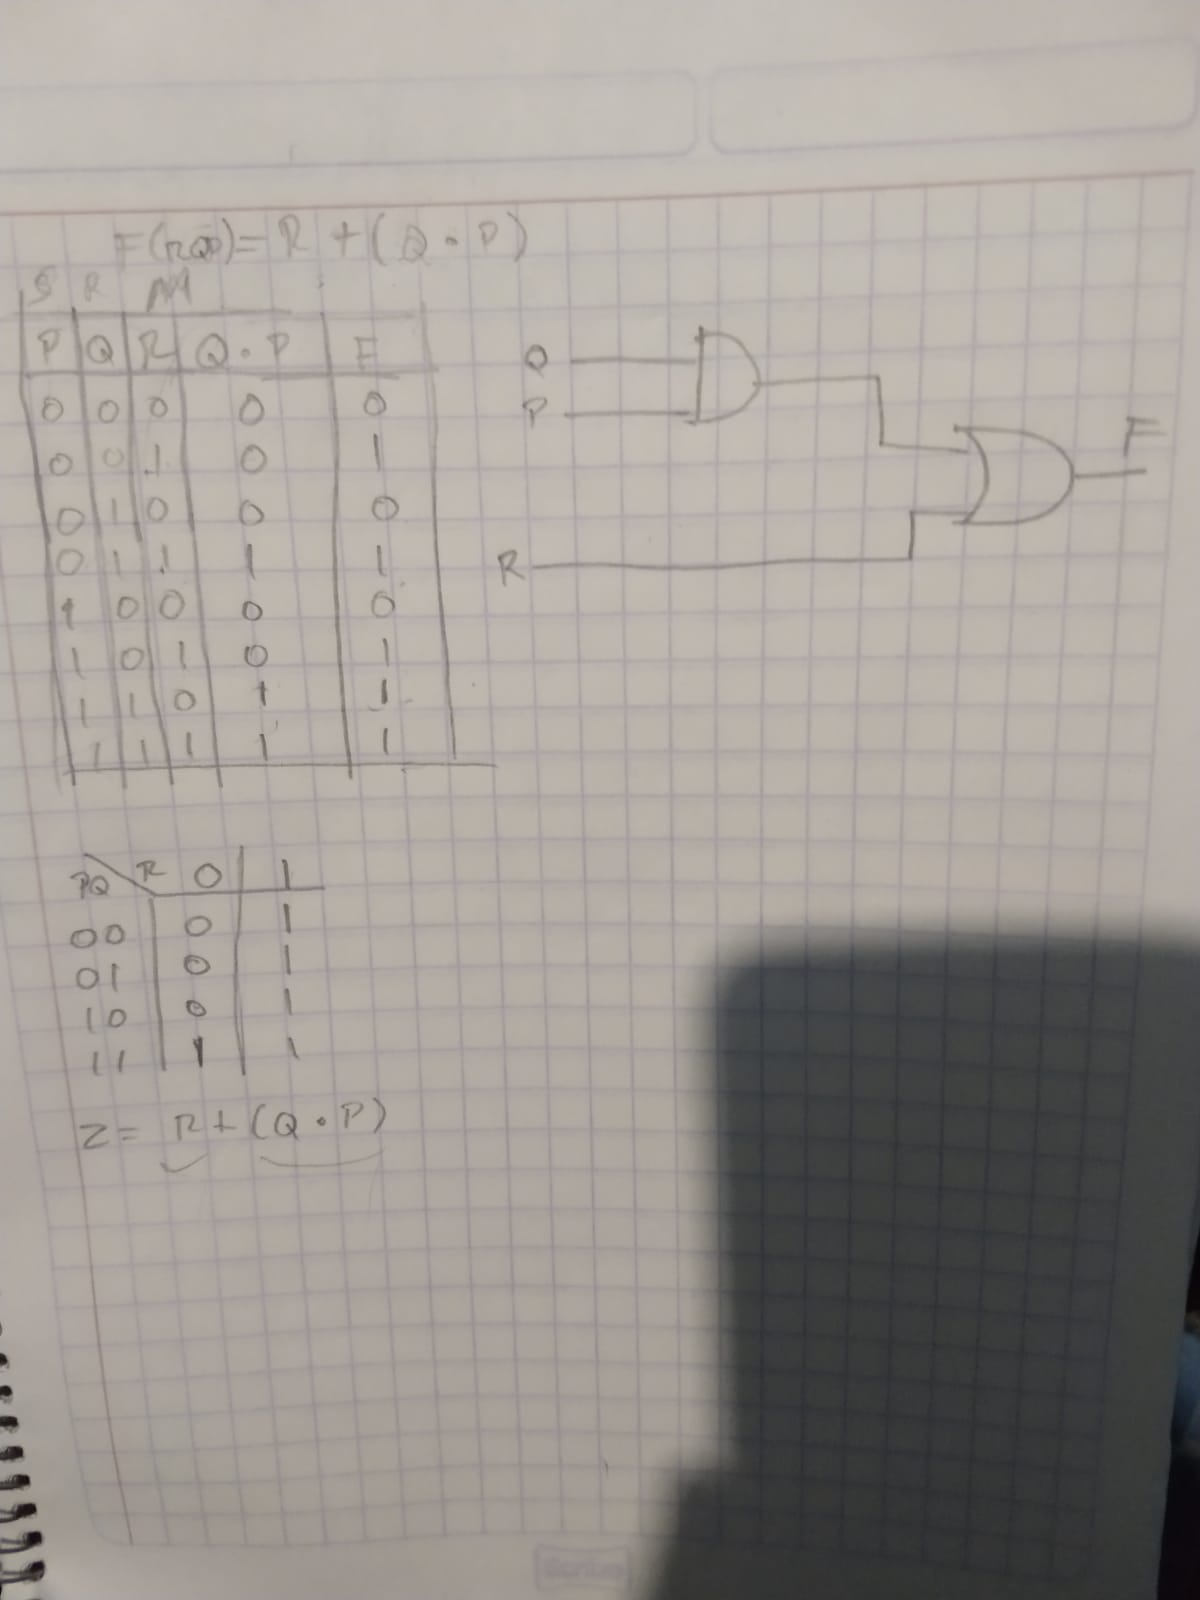 F(RQP)= R + (Q · P)
S R
P Q R Q · P F
0 0 0 0 0
0 0 1 0 1
0 1 0 0 0
0 1 1 1 1
1 0 0 0 0
1 0 1 0 1
1 1 0 1 1
1 1 1 1 1
Q
P
R
F
PQ R 0 1
00 0 1
01 0 1
10 0 1
11 1 1
Z= R+(Q·P)
Scribe